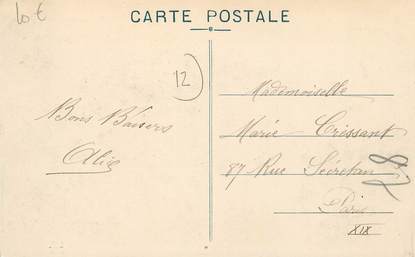 10 €
CARTE POSTALE
12
Mademoiselle
Bons Baisers
Marie Crissant
Alice
87 Rue Sécretan
28
Paris
XIX